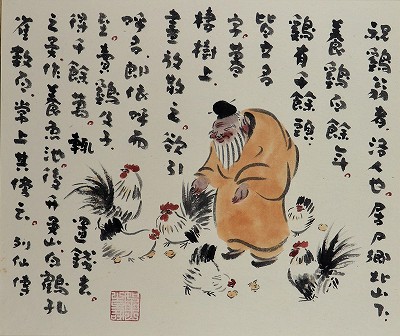 祝鷄翁者洛人也居尸鄉北山下
養鷄百餘年
鷄有千餘頭
皆立名
字暮
棲樹上
晝放散之欲引
呼名即依呼而
至賣鷄及子
得千餘萬輒置錢去
之吳作養魚池後升吳山白鶴孔
雀數百常止其傍云 列仙傳